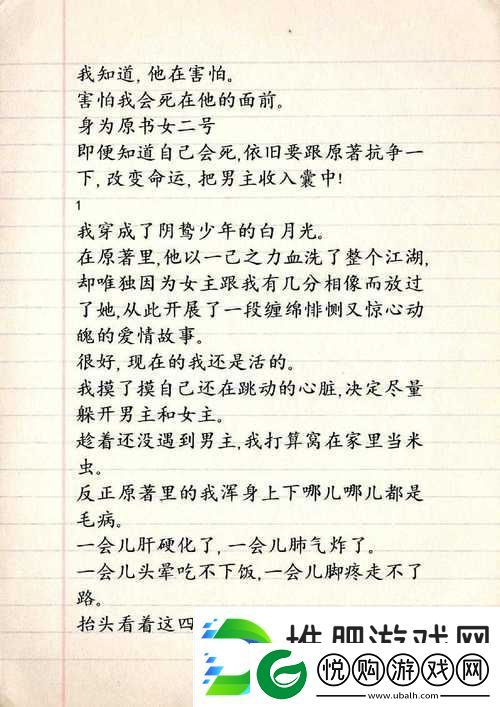 我知道，他在害怕。
害怕我会死在他的面前。
身为原书女二号
即便知道自己会死,依旧要跟原著抗争一
下,改变命运,把男主收入囊中!
1
我穿成了阴鸷少年的白月光。
在原著里,他以一己之力血洗了整个江湖,
却唯独因为女主跟我有几分相像而放过
了她,从此开展了一段缠绵悱恻又惊心动
魄的爱情故事。
很好,现在的我还是活的。
我摸了摸自己还在跳动的心脏,决定尽量
躲开男主和女主。
趁着还没遇到男主,我打算窝在家里当米
虫。
反正原著里的我浑身上下哪儿哪儿都是
毛病。
一会儿肝硬化了,一会儿肺气炸了。
一会儿头晕吃不下饭,一会儿脚疼走不了
路。
抬头看着这四
悦购游戏网
www.ubalh.com